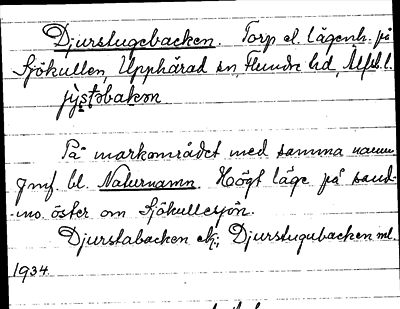 Djurstugebacken. Torp el. lägenh. på
Sjökullen, Upphärad sn, Flundre hd, Älfsb. l.
jùstəbakən
På markområdet med samma namn
Jmf. bl. Naturnamn. Högt läge på sand-
-mo öster om Sjökullesjön.
Djurstabacken ek; Djurstugubacken ml.
1934